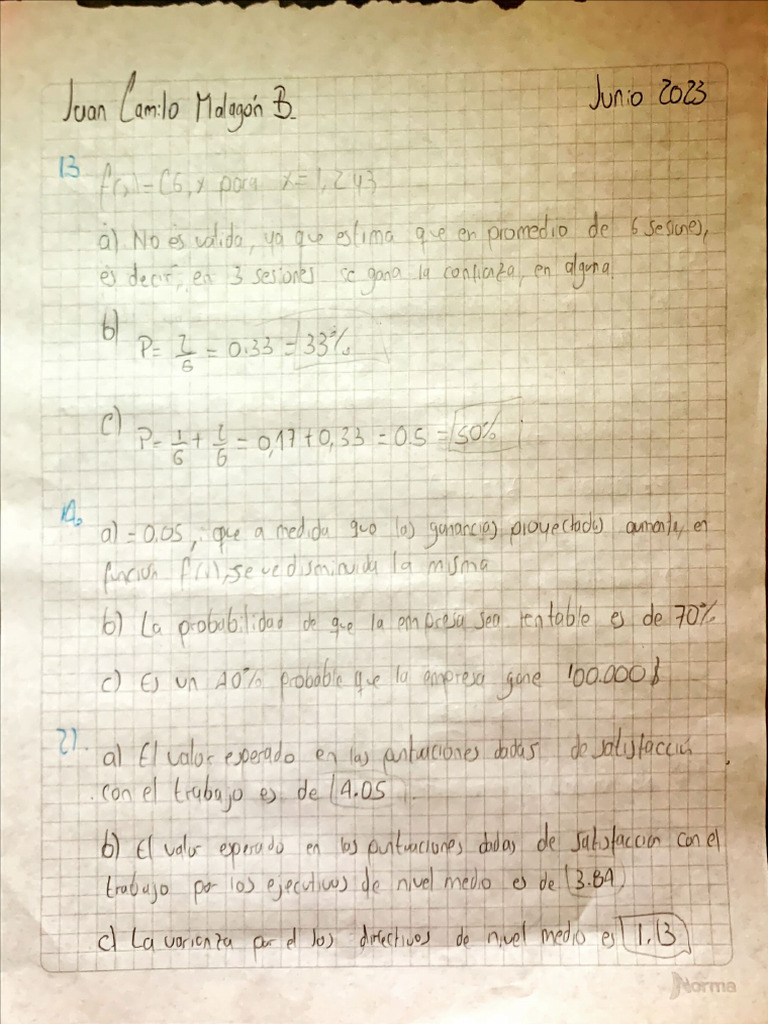 Juan Camilo Malagón B.
Junio 2023
13
f(x)=(6,x para x=1,2 y 3
a) No es valida, ya que estima que en promedio de 6 sesiones,
es decir, en 3 sesiones se gana la confianza, en alguna
b) P= 2/6 = 0.33 = 33%
c) P= 1/6 + 2/6 = 0,17+0,33 = 0.5 = 50%
a) =0.05, que a medida que las ganancias proyectadas aumente, en
funcion f(x), se ve disminuida la misma
b) La probabilidad de que la empresa sea rentable es de 70%
c) Es un 40% probable que la empresa gane 100.000$
21.
a) El valor esperado en las puntuaciones dadas de satisfacción
con el trabajo es de 4.05
b) El valor esperado en las puntuaciones dadas de satisfaccion con el
trabajo por los ejecutivos de nivel medio es de 3.84
c) La varianza por el los directivos de nivel medio es 1.13
Norma